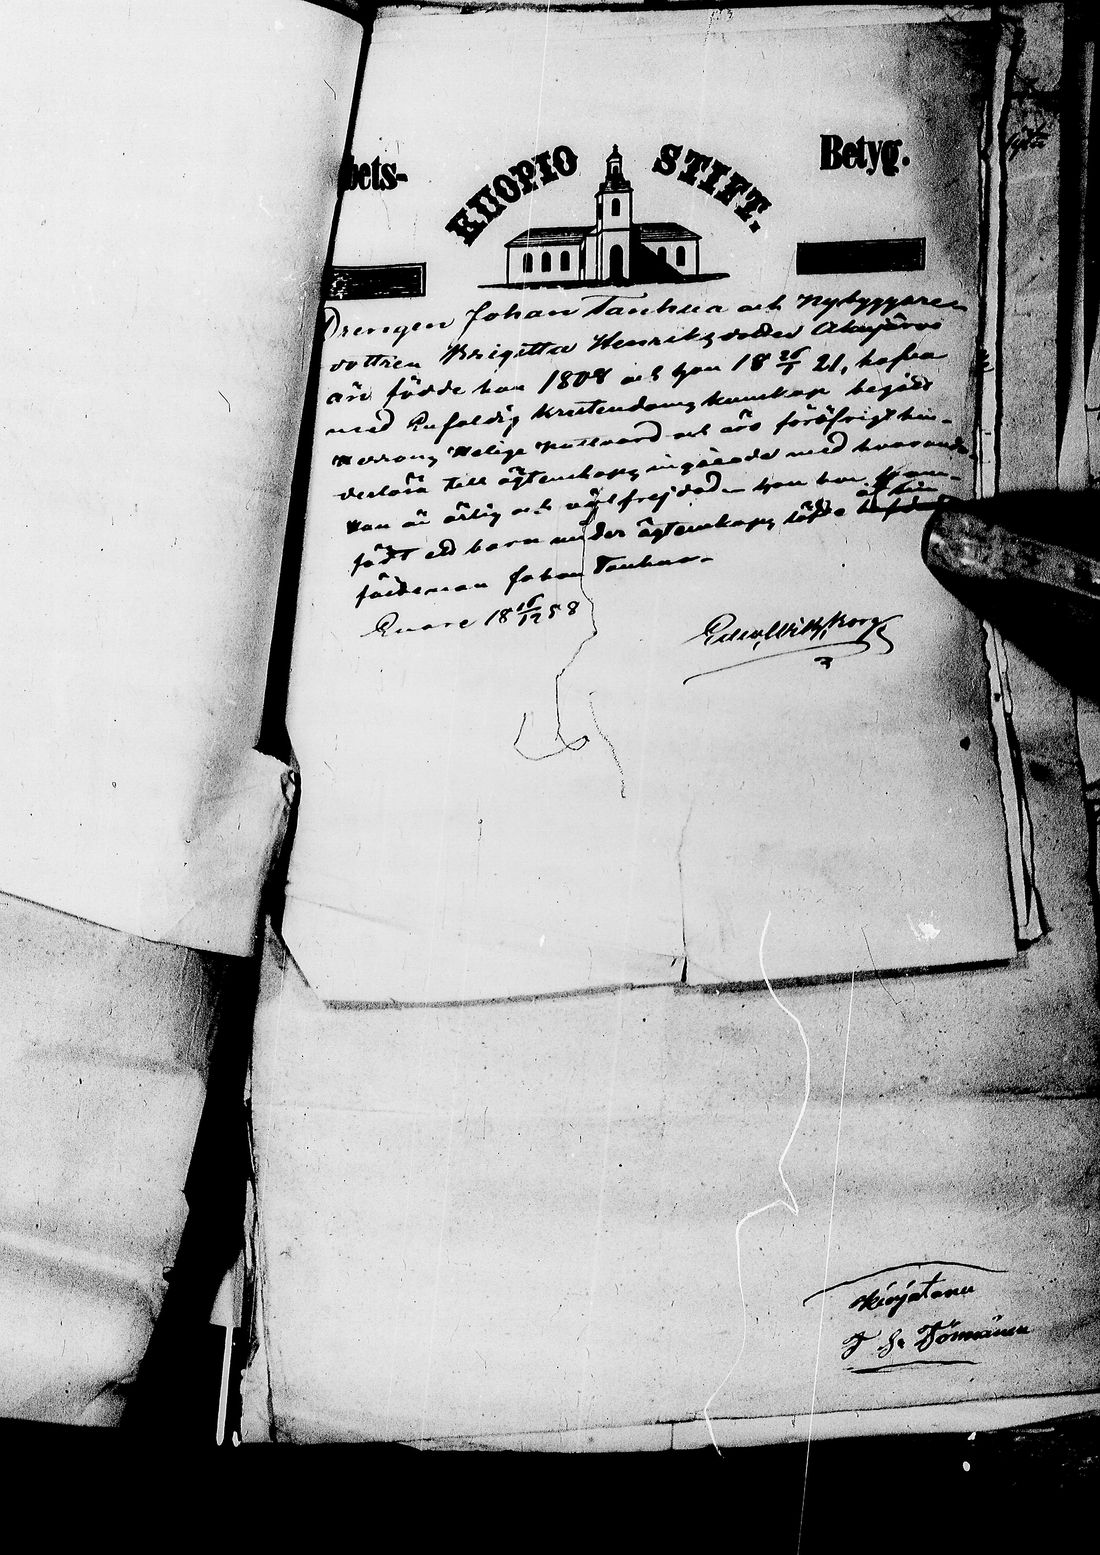 bets-
KUOPIO STIFT.
Betyg.
Drengen Johan Tanhua och Nybyggare-
dottren Brigitta Henriksdotter Akujärvi
äro födde han 1808 och hon 18 26/1 21, hafva
med Enfaldig Kristendoms kunskap begått
Herrans Heliga Nattvard och äro föröfrigt hin-
derlösa till ägtenskaps ingående med hvarandra.
Han är ärlig och väl frejdad - hon har fram-
födt ett barn under ägtenskaps löfte af sin
fästeman Johan Tanhua.-
Enare 18 16/12 58
Edv. Wilh. Borg
Kirjatanu
J. Törmänen